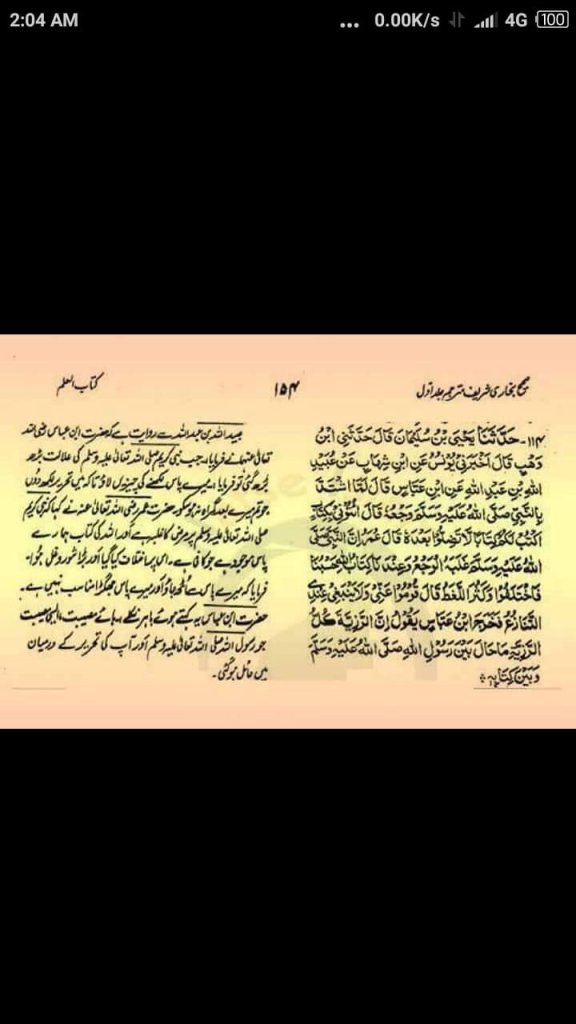 2:04 AM ... 0.00K/s 4G 100
صحیح بخاری شریف مترجم جلد اول ۱۵۴ کتاب العلم
۱۱۴- حَدَّثَنَا يَحْيَى بْنُ سُلَيْمَانَ قَالَ حَدَّثَنِي ابْنُ
وَهْبٍ قَالَ أَخْبَرَنِي يُونُسُ عَنِ ابْنِ شِهَابٍ عَنْ عُبَيْدِ
اللهِ بْنِ عَبْدِ اللهِ عَنِ ابْنِ عَبَّاسٍ قَالَ لَمَّا اشْتَدَّ
بِالنَّبِيِّ صَلَّى اللهُ عَلَيْهِ وَسَلَّمَ وَجَعُهُ قَالَ ائْتُونِي بِكِتَابٍ
اَكْتُبْ لَكُمْ كِتَابًا لَا تَضِلُّوا بَعْدَهُ قَالَ عُمَرُ إِنَّ النَّبِيَّ صَلَّى
اللهُ عَلَيْهِ وَسَلَّمَ غَلَبَهُ الْوَجَعُ وَعِنْدَنَا كِتَابُ اللهِ حَسْبُنَا
فَاخْتَلَفُوا وَكَثُرَ اللَّغَطُ قَالَ قُومُوا عَنِّي وَلَا يَنْبَغِي عِنْدِي
التَّنَازُعُ فَخَرَجَ ابْنُ عَبَّاسٍ يَقُولُ إِنَّ الرَّزِيَّةَ كُلَّ
الرَّزِيَّةِ مَا حَالَ بَيْنَ رَسُولِ اللهِ صَلَّى اللهُ عَلَيْهِ وَسَلَّمَ
وَبَيْنَ كِتَابِهِ
عبید اللہ بن عبد اللہ سے روایت ہے کہ حضرت ابن عباس رضی اللہ
تعالیٰ عنہما نے فرمایا۔ جب نبی کریم صلی اللہ تعالیٰ علیہ وسلم کی علالت بڑھ
بڑھ گئی تو فرمایا، میرے پاس لکھنے کی چیزیں لاؤ تاکہ میں تحریر لکھ دوں
جو تم میرے بعد گمراہ نہ ہو سکو۔ حضرت عمر رضی اللہ عنہ نے کہا کہ نبی کریم
صلی اللہ تعالیٰ علیہ وسلم پر مرض کا غلبہ ہے اور اللہ کی کتاب ہمارے
پاس موجود ہے جو کافی ہے۔ اس پر اختلاف کیا گیا اور بڑا شور و غل ہوا۔
فرمایا کہ میرے پاس سے اُٹھ جاؤ اور میرے پاس جھگڑا مناسب نہیں ہے۔
حضرت ابن عباس یہ کہتے ہوئے باہر نکلے، ہائے مصیبت، الیسی مصیبت
جو رسول اللہ صلی اللہ تعالیٰ علیہ وسلم اور آپ کی تحریر کے درمیان
میں حائل ہو گئی۔